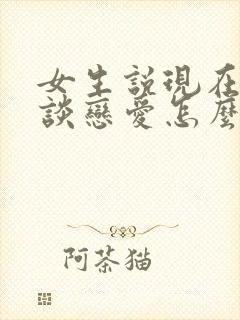 女生説現在
談戀愛怎麽
阿茶猫